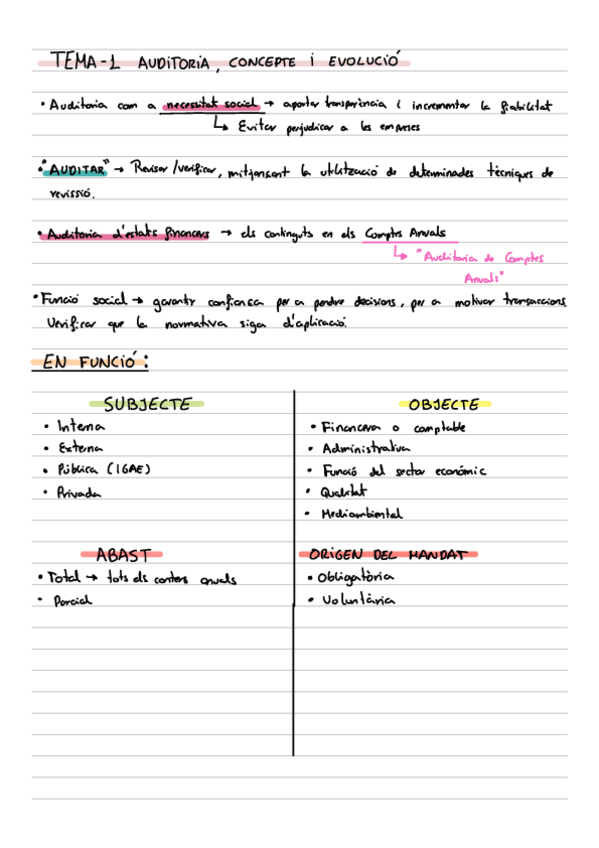 TEMA-1 AUDITORIA, CONCEPTE i EVOLUCIÓ
• Auditoria com a necessitat social → aportar transparència i incrementar la fiabilitat
↳ Evitar perjudicar a les empreses
• "AUDITAR" → Revisar/verificar, mitjançant la utilització de determinades tècniques de
revissió.
• Auditoria d'estats financers → els continguts en els Comptes Anuals
↳ "Auditoria de Comptes
Anuals"
• Funció social → garantir confiança per a pendre decisions, per a motivar transaccions.
Verificar que la normativa siga d'aplicació.
EN FUNCIÓ:
SUBJECTE
• Interna
• Externa
• Pública (IGAE)
• Privada
OBJECTE
• Financera o comptable
• Administrativa
• Funció del sector econòmic
• Qualitat
• Mediambiental
ABAST
• Total → tots els anuals
• Parcial
ORIGEN DEL MANDAT
• Obligatòria
• Voluntària